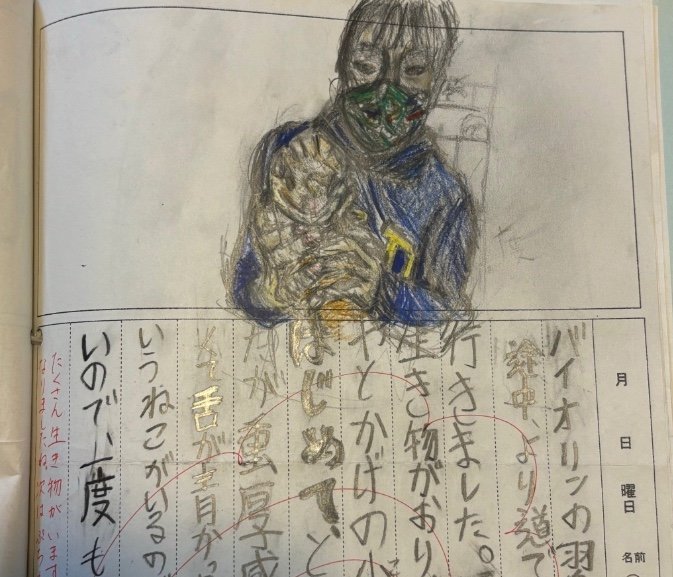 月 日 曜日 名前
バイオリンの羽
途中、より道で
行きました。
生き物がおり
やとかげの小
はじめて、ど
だが、重厚感
て舌が青かっ
いうねこがいるの
いので、一度も
たくさん生き物がいます
なりましたね。次は